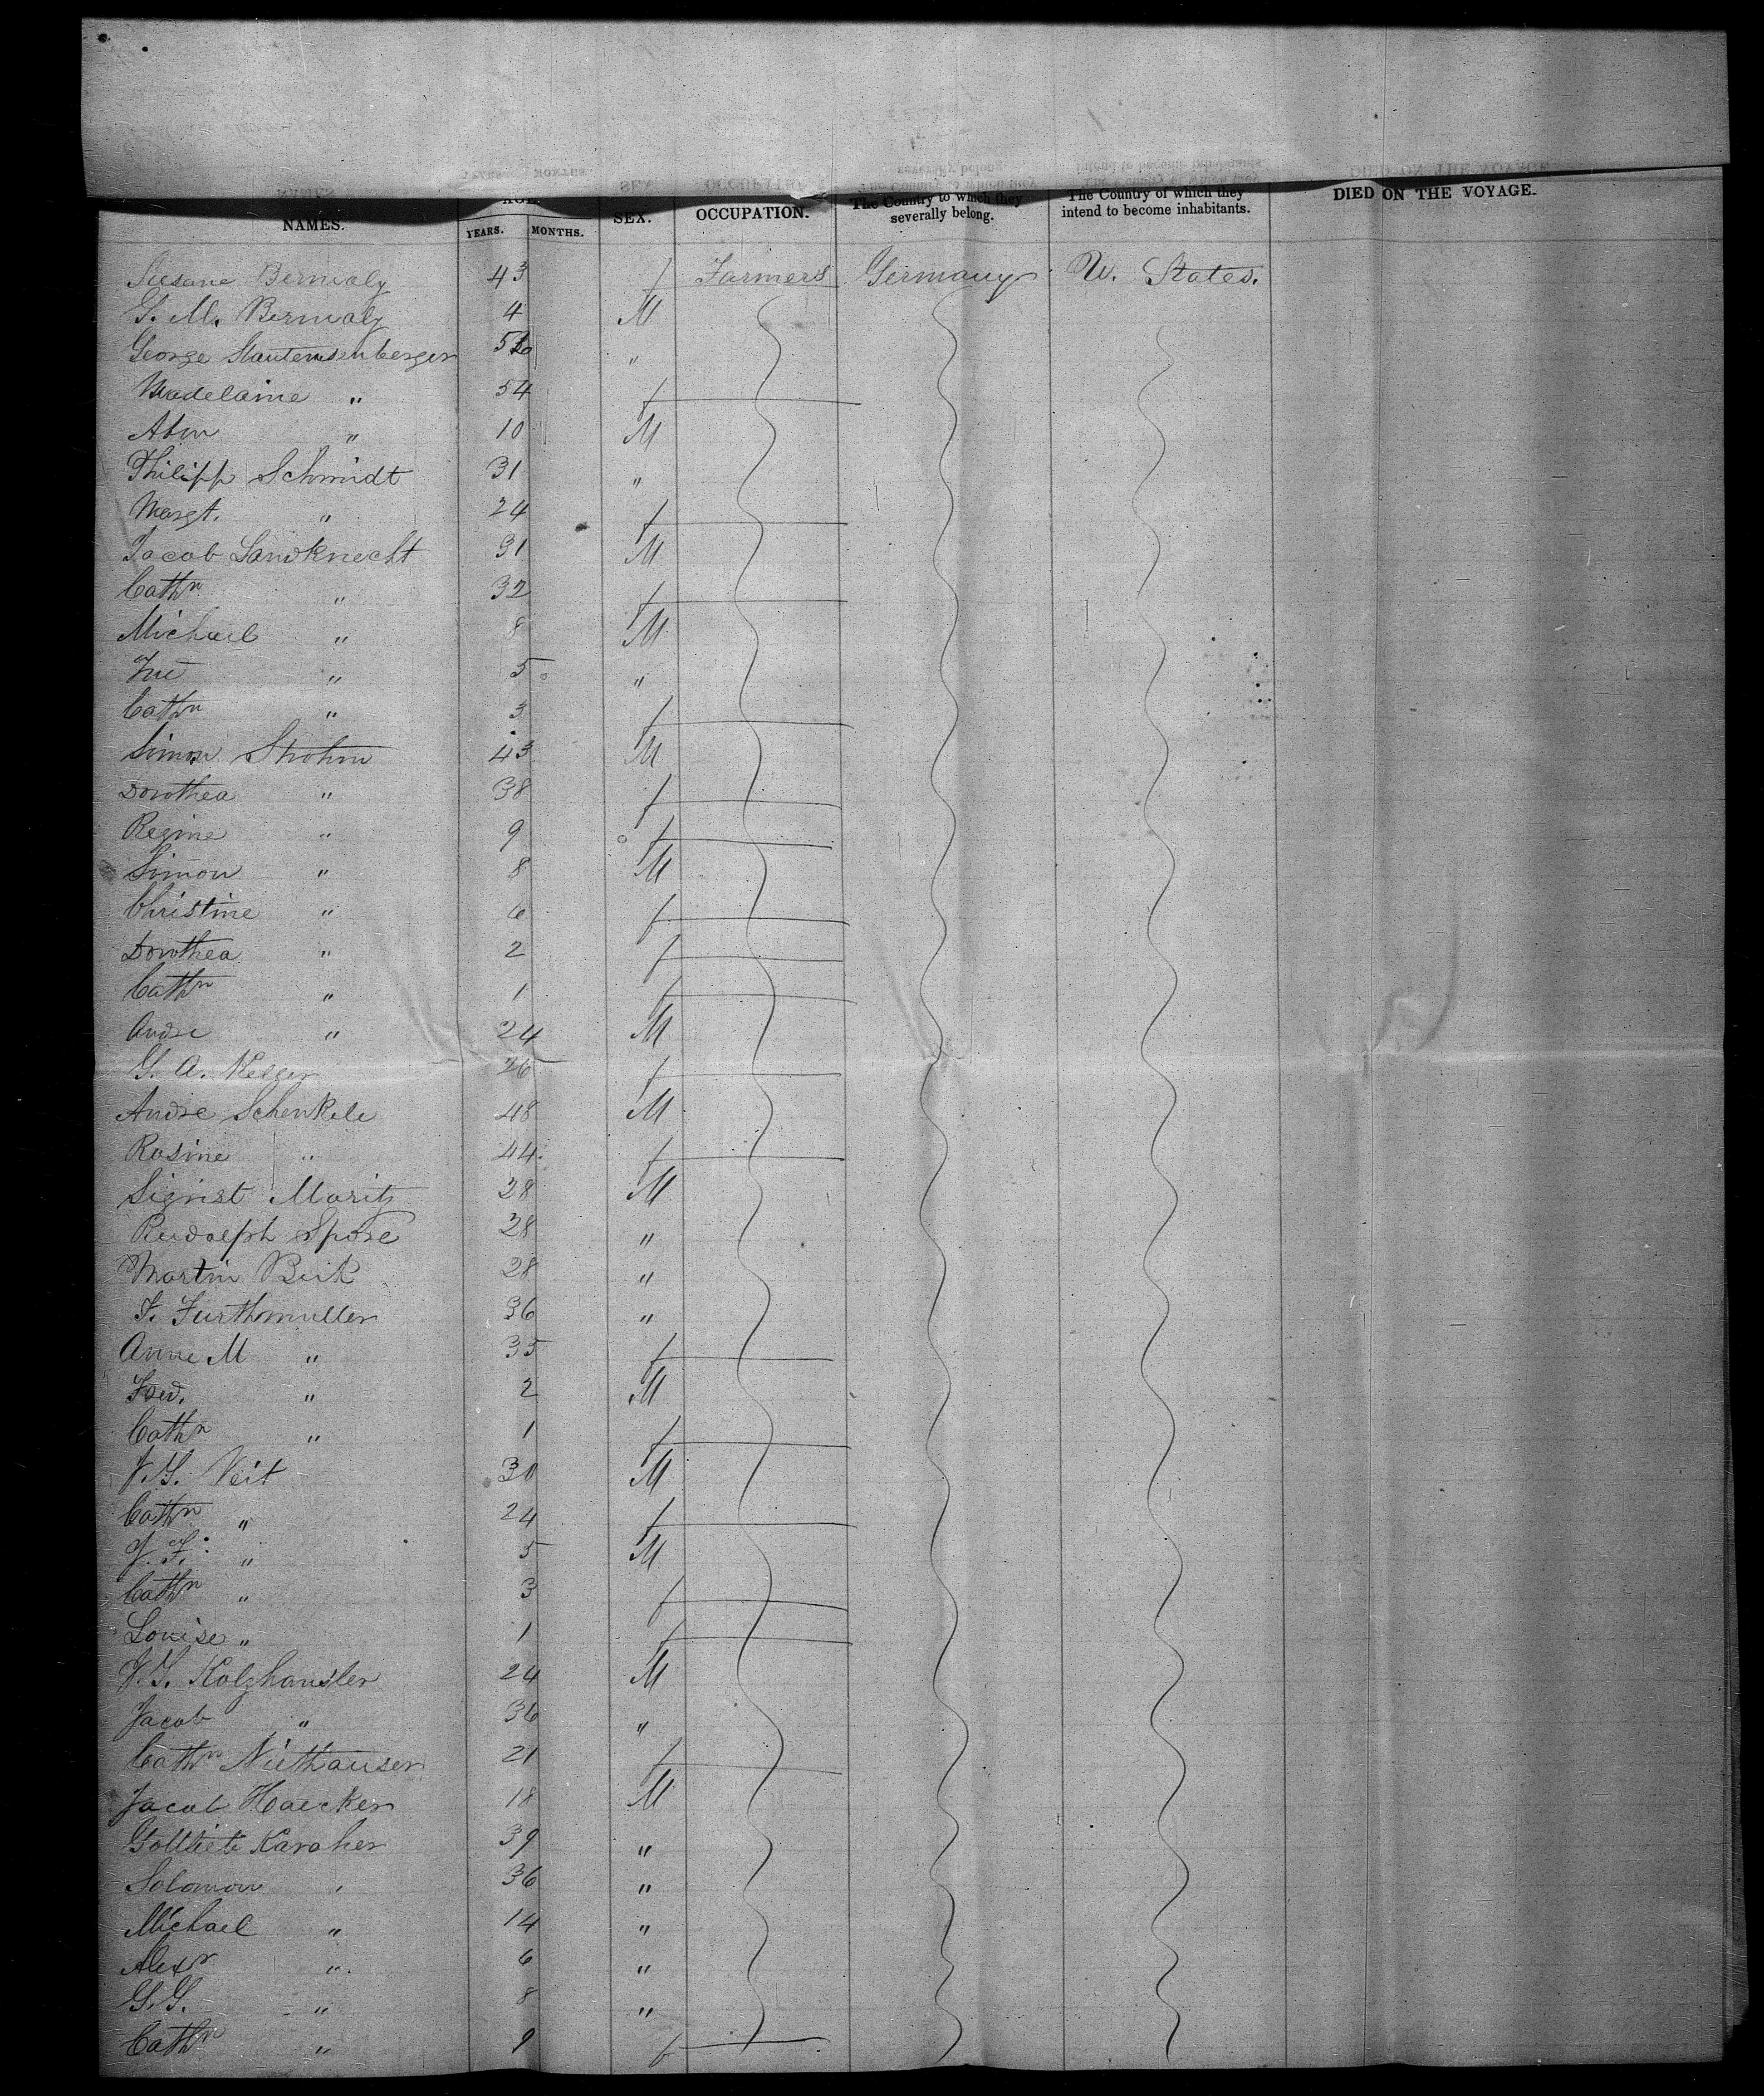 NAMES. AGE. YEARS. MONTHS. SEX. OCCUPATION. The Country to which they severally belong. The Country of which they intend to become inhabitants. DIED ON THE VOYAGE.
Susane 43 f Farmers Germany U. States.
G. M. 4 M
George 5 "
Madelaine " 54 f
" 10 M
Philipp Schmidt 31 "
Margt. " 24 f
Jacob Landknecht 31 M
Cathn " 32 f
Michael " 8 M
" 5 "
Cathn " 3 f
Simon Strohm 43 M
Dorothea " 38 f
Regine " 9 f
Simon " 8 M
Christine " 6 f
Dorothea " 2 f
Cathn " 1 f
Andre " 24 M
G. A. Keller 26 f
Andre Schenkele 48 M
Rosine " 44 f
Sigrist Moritz 28 M
Rudolph 28 "
Martin 28 "
F. Furthmuller 36 "
Anne M " 35 f
" 2 M
Cathn " 1 f
J. G. Veit 30 M
Cathn " 24 f
J. F. " 5 M
Cathn " 3 f
Louise " 1 f
J. G. Holzhausler 24 M
Jacob " 36 "
Cathn Niethauser 21 f
Jacob Haecker 18 M
Gottlieb Karaher 39 "
Solomon " 36 "
Michael " 14 "
Alexr " 6 "
G. G. " 8 "
Cathn " 9 f